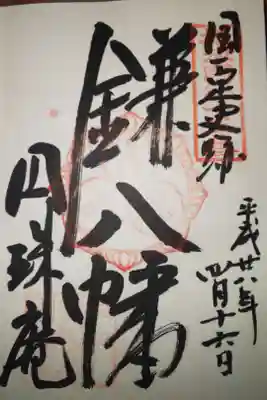 国指定史跡
鎌八幡
円珠庵
平成廿八年
四月十六日